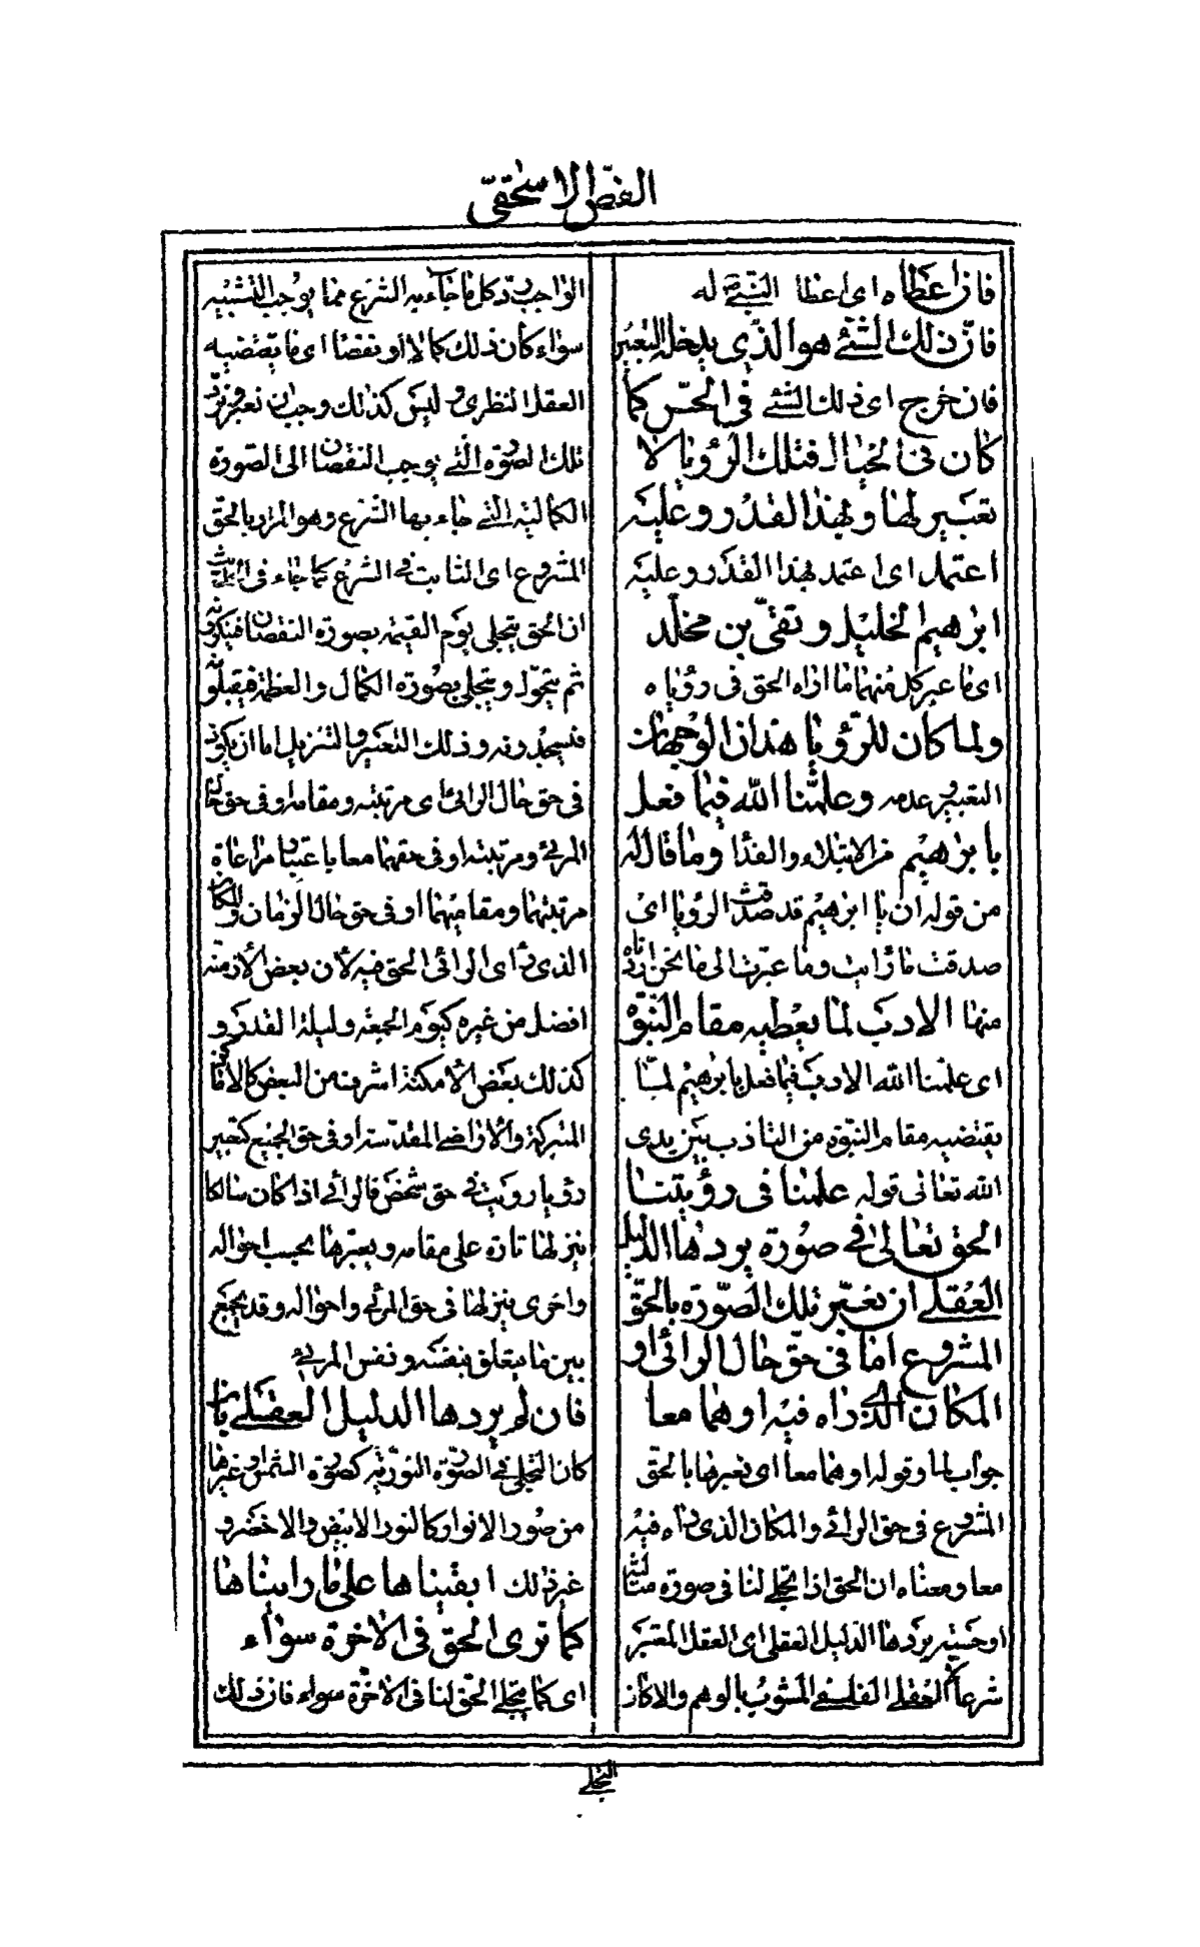 الفصّ الاسحٰقیّ
فان اعطاه ای اعطا الشئ له
فانّ ذلك الشئ هو الذی یدخله التعبیر
فان خرج ای ذلك الشئ فی الحسّ كما
كان فی الخیال فتلك الرؤیا لا
تعبیر لها وبهذا القدر وعلیه
اعتمد ای اعتمد بهذا القدر وعلیه
ابرهیم الخلیل وتقیّ بن مخلّد
ای ما عبر كل منهما ما اراه الحق فی رؤیاه
ولما كان للرؤیا هذان الوجهان
التعبیر وعدمه وعلمنا الله فیما فعل
بابرهیم من الابتلاء والفدا وما قال له
من قوله ان یا ابرهیم قد صدقت الرؤیا ای
صدقت ما رایت وما عبرت الی ما نحن اردناه
منها الادب لما یعطیه مقام النبوّة
ای علمنا الله الادب فیما فعل بابرهیم لمّا
یقتضیه مقام النبوّة من التادب بین یدی
الله تعالی قوله علمنا فی رؤیتنا
الحق تعالی فی صورة یردها الدلیل
العقلی ان نعبّر تلك الصّورة بالحقّ
المشروع امّا فی حقّ حال الرائی او
المكان الذی راه فیه او هما معا
جواب لما وقوله او هما معا ای نعبرها بالحق
المشروع فی حق الرائی والمكان الذی رآه فیه
معا ومعناه ان الحق اذا تجلی لنا فی صورة مثالیة
او حسیة یردها الدلیل العقلی ای العقل المعتبر
شرعا لا العقلی الفلسفی المشوب بالوهم والا كان
الواجب رد كل ما جاء به الشرع مما یوجب التشبیه
سواء كان ذلك كمالا او نقصا ای ما یقتضیه
العقل النظری و لیس كذلك وجب ان نعبر ونرد
تلك الصورة التی یوجب النقصان الی الصورة
الكمالیة التی جاء بها الشرع وهو المراد بالحق
المشروع ای الثابت فی الشرع كما جاء فی الحدیث
ان الحق یتجلی یوم القیمة بصورة النقصان فینكرونه
ثم یتحول ویتجلی بصورة الكمال والعظمة فیقبلونه
فیسجدونه وذلك التعبیر والتنزیل اما ان یكون
فی حق حال الرائی ای مرتبته ومقامه او فی حق حال
المرئی ومرتبته او فی حقهما معا باعتبار مراعاة
مرتبتهما ومقامیهما او فی حق حال الزمان والمكان
الذی رای الرائی الحق فیه لأن بعض الأزمنة
افضل من غیره كیوم الجمعة ولیلة القدر و
كذلك بعض الأمكنة اشرف من البعض كالاماكن
المتبركة والأراضی المقدسة او فی حق الجمیع كتعبیر
رؤیا رویت فی حق شخص فالرائی اذا كان سالكا
ینزلها تارة علی مقامه ویعبرها بحسب احواله
واخری ینزلها فی حق المرئی واحواله وقد یجمع
بین ما یتعلق بنفسه ونفس المرئی
فان لم یردها الدلیل العقلی بان
كان التجلی فی الصورة النوریة كصورة الشمس وغیرها
من صور الانوار كالنور الابیض والاخضر و
غیر ذلك ابقیناها علی ما رایناها
كما تری الحق فی الاخرة سواء
ای كما یتجلی الحق لنا فی الاخرة سواء فان ذلك
التجلی